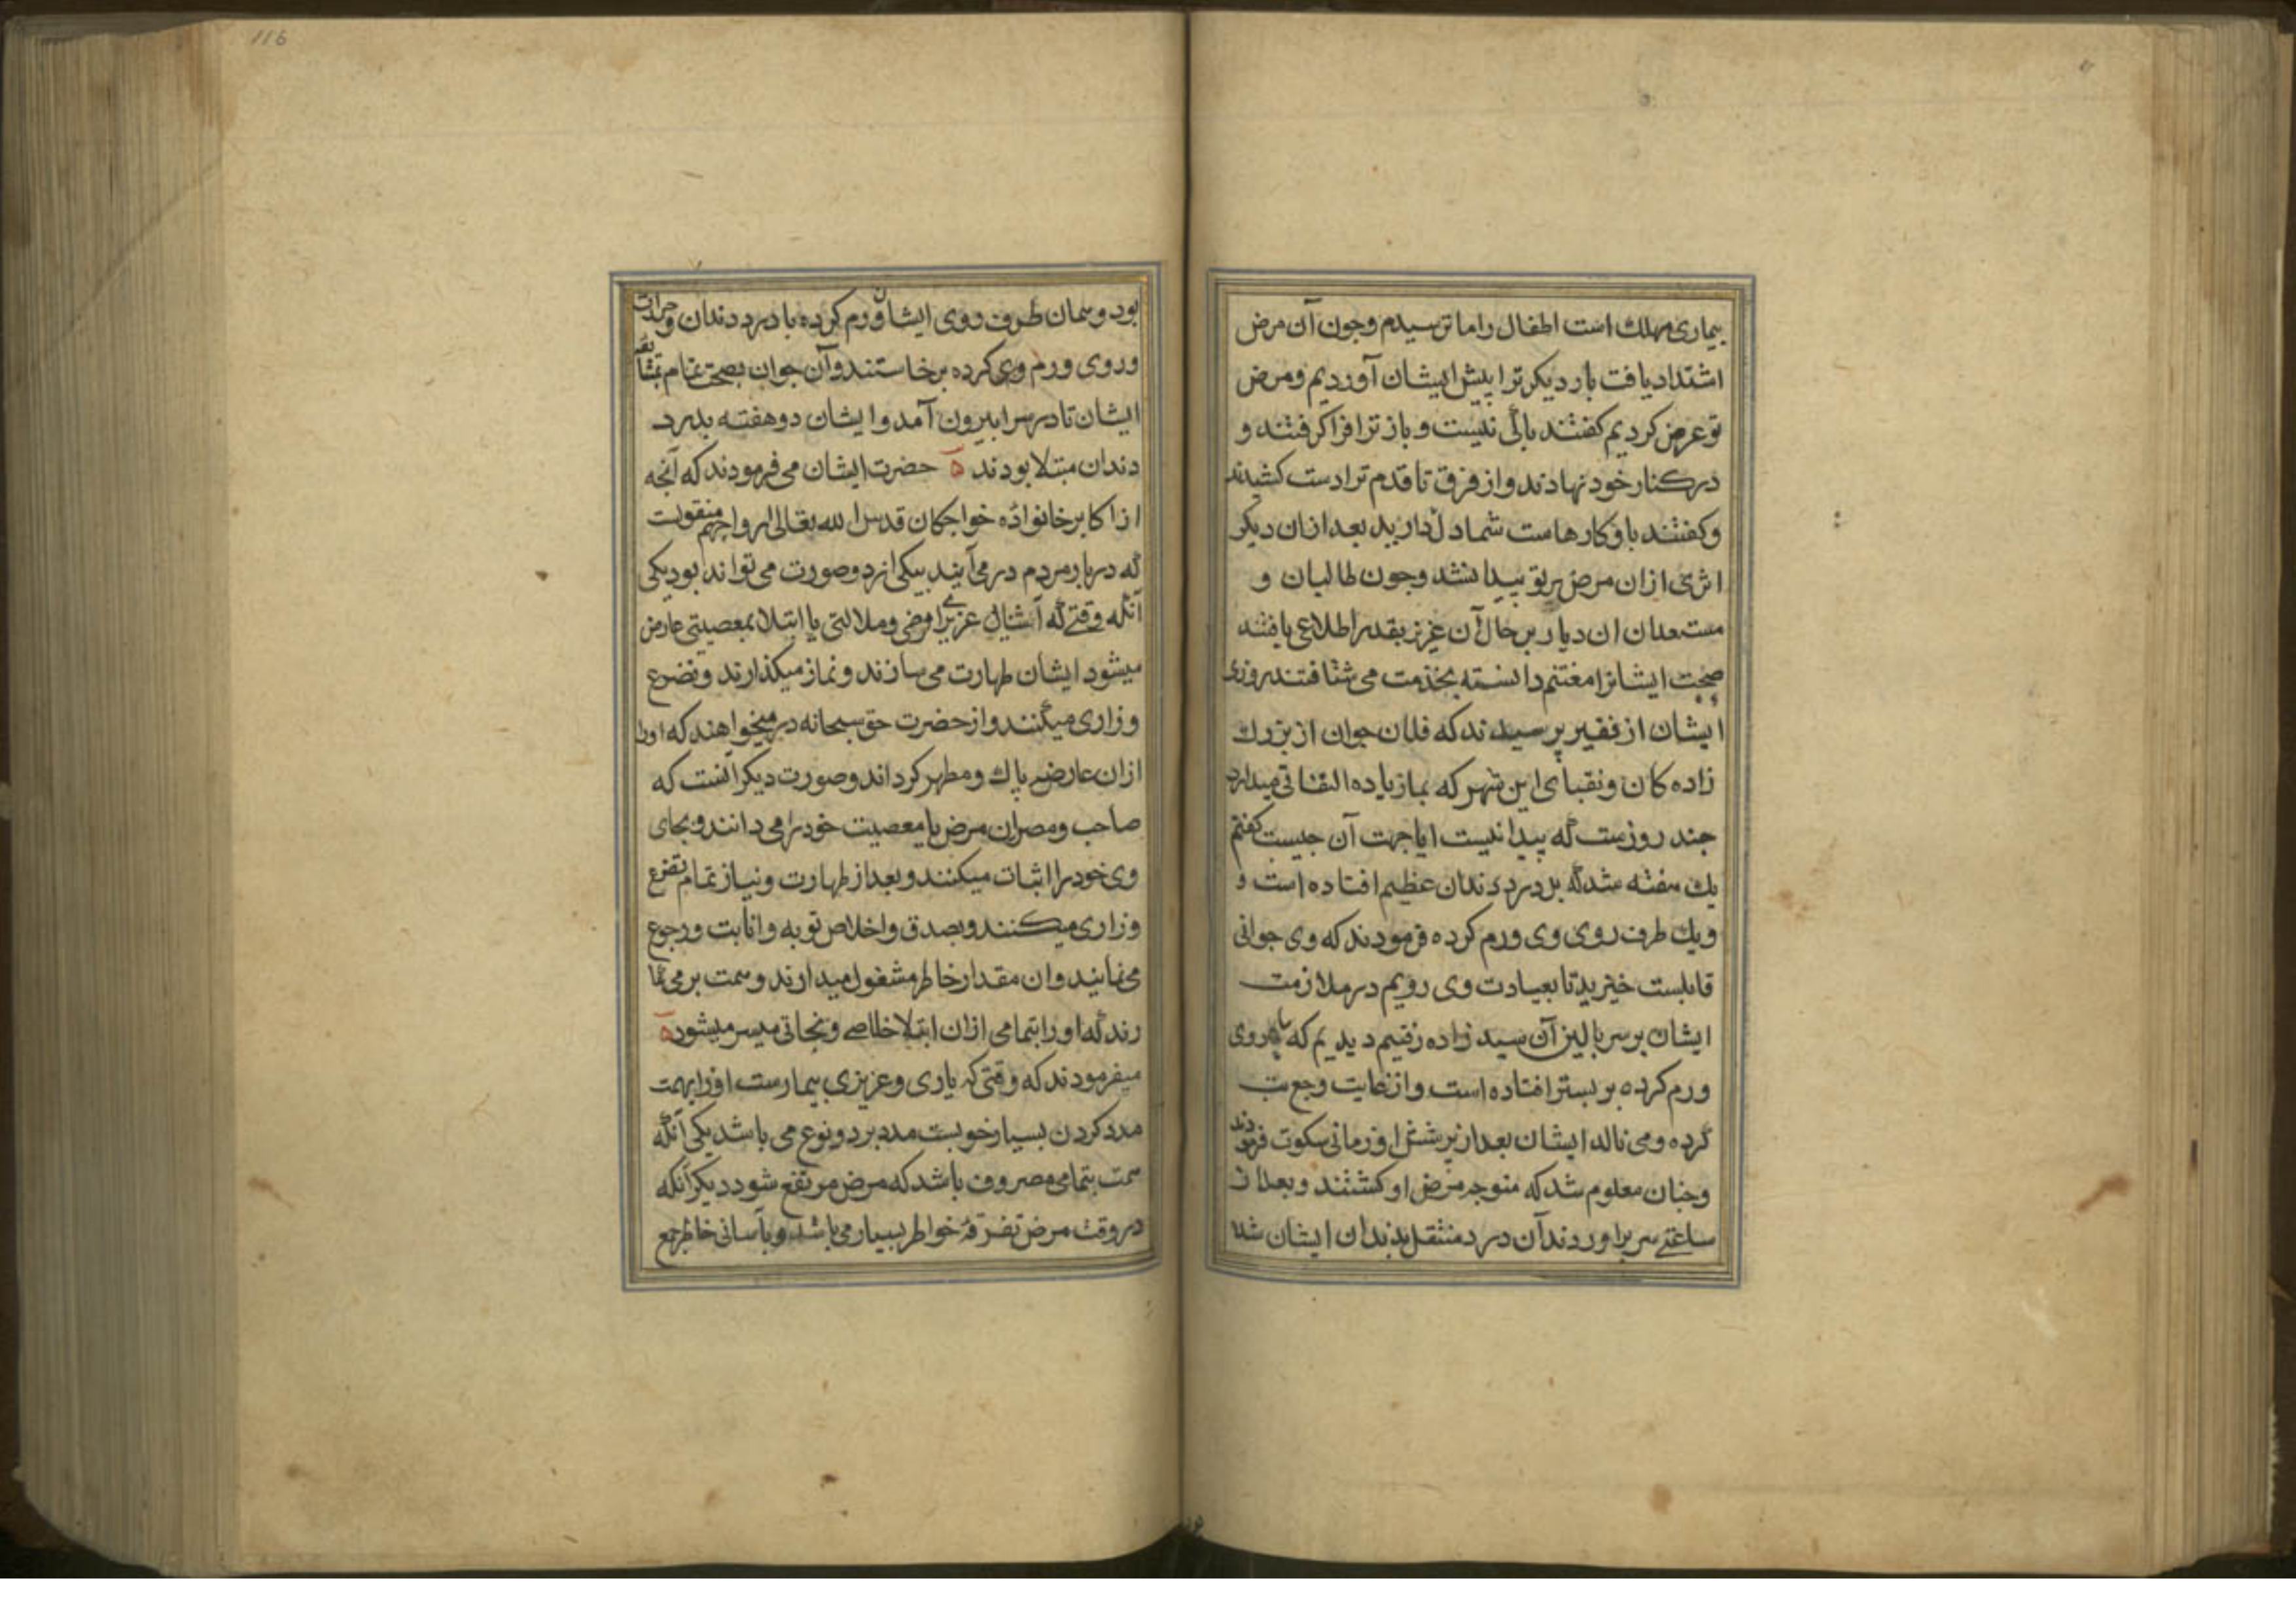 بیماری مهلك است اطفال را ما ترسیدم وجون آن مرض
اشتداد یافت بار دیکر ترا پیش ایشان آوردیم ومرض
تو عرض کردیم کفتند باکی نیست و باز ترا فرا کرفتند و
در کنار خود نهادند و از فرق تا قدم ترا دست کشیدند
وکفتند با و کارهاست شما دل دارید بعد ازان دیکر
اثری ازان مرض بر تو پیدا نشد وجون طالبان و
مستعدان ان دیار بر حال آن عزیز بقدر اطلاع یافتند
صحبت ایشانرا مغتنم دانسته بخدمت می شتافتند روزی
ایشان از فقیر پرسیدند که فلان جوان از بزرك
زاده کان ونقبای این شهر که بما زیاده التفاتی میدارد
جند روزست که پیدا نیست ایا جهت آن جیست کفتم
یك هفته شد که بدرد دندان عظیم افتاده است و
ویك طرف روی وی ورم کرده فرمودند که وی جوانی
قابلست خیزید تا بعیادت وی رویم در ملازمت
ایشان بر سر بالین آن سید زاده رفتیم دیدیم که روی
ورم کرده بر بستر افتاده است واز غایت وجع تب
کرده ومی نالد ایشان بعد از پرسش او زمانی سکوت فرمودند
وجنان معلوم شد که متوجه مرض او کشتند وبعد از
ساعتی سر براوردند آن درد منتقل بدندان ایشان شد
116
بود وهمان طرف روی ایشان ورم کرده با درد دندان وحرارت
وروی ورم وی کرده برخاستند وآن جوان بصحت تمام
ایشان تا در سرا بیرون آمد وایشان دو هفته بدرد
دندان مبتلا بودند ه حضرت ایشان می فرمودند که آنجه
از اکابر خانواده خواجکان قدس الله تعالی ارواحهم منقولست
که در بار مردم در می آیند بیکی از دو صورت می تواند بود یکی
آنکه وقتی که عزیزی را مرضی وملالتی یا ابتلا بمعصیتی عارض
میشود ایشان طهارت می سازند ونماز میکذارند وتضرع
وزاری میکنند واز حضرت حق سبحانه در میخواهند که اورا
ازان عارضه پاك ومطهر کرداند وصورت دیکر انست که
صاحب ومصران مرض یا معصیت خود را می دانند وبجای
وی خود را اثبات میکنند وبعد از طهارت ونیاز تمام تضرع
وزاری میکنند وبصدق واخلاص توبه وانابت ورجوع
می نمایند وان مقدار خاطر مشغول میدارند وهمت بر می کما
رند که اورا بتمامی ازان ابتلا خلاصی ونجاتی میسر میشود ه
میفرمودند که وقتی که یاری وعزیزی بیمارست اورا بهمت
مدد کردن بسیار خوبست مدد بر دو نوع می باشد یکی آنکه
همت بتمامی مصروف باشد که مرض مرتفع شود دیکر آنکه
در وقت مرض تفرقۀ خواطر بسیار می باشد وبآسانی خاطر جمع